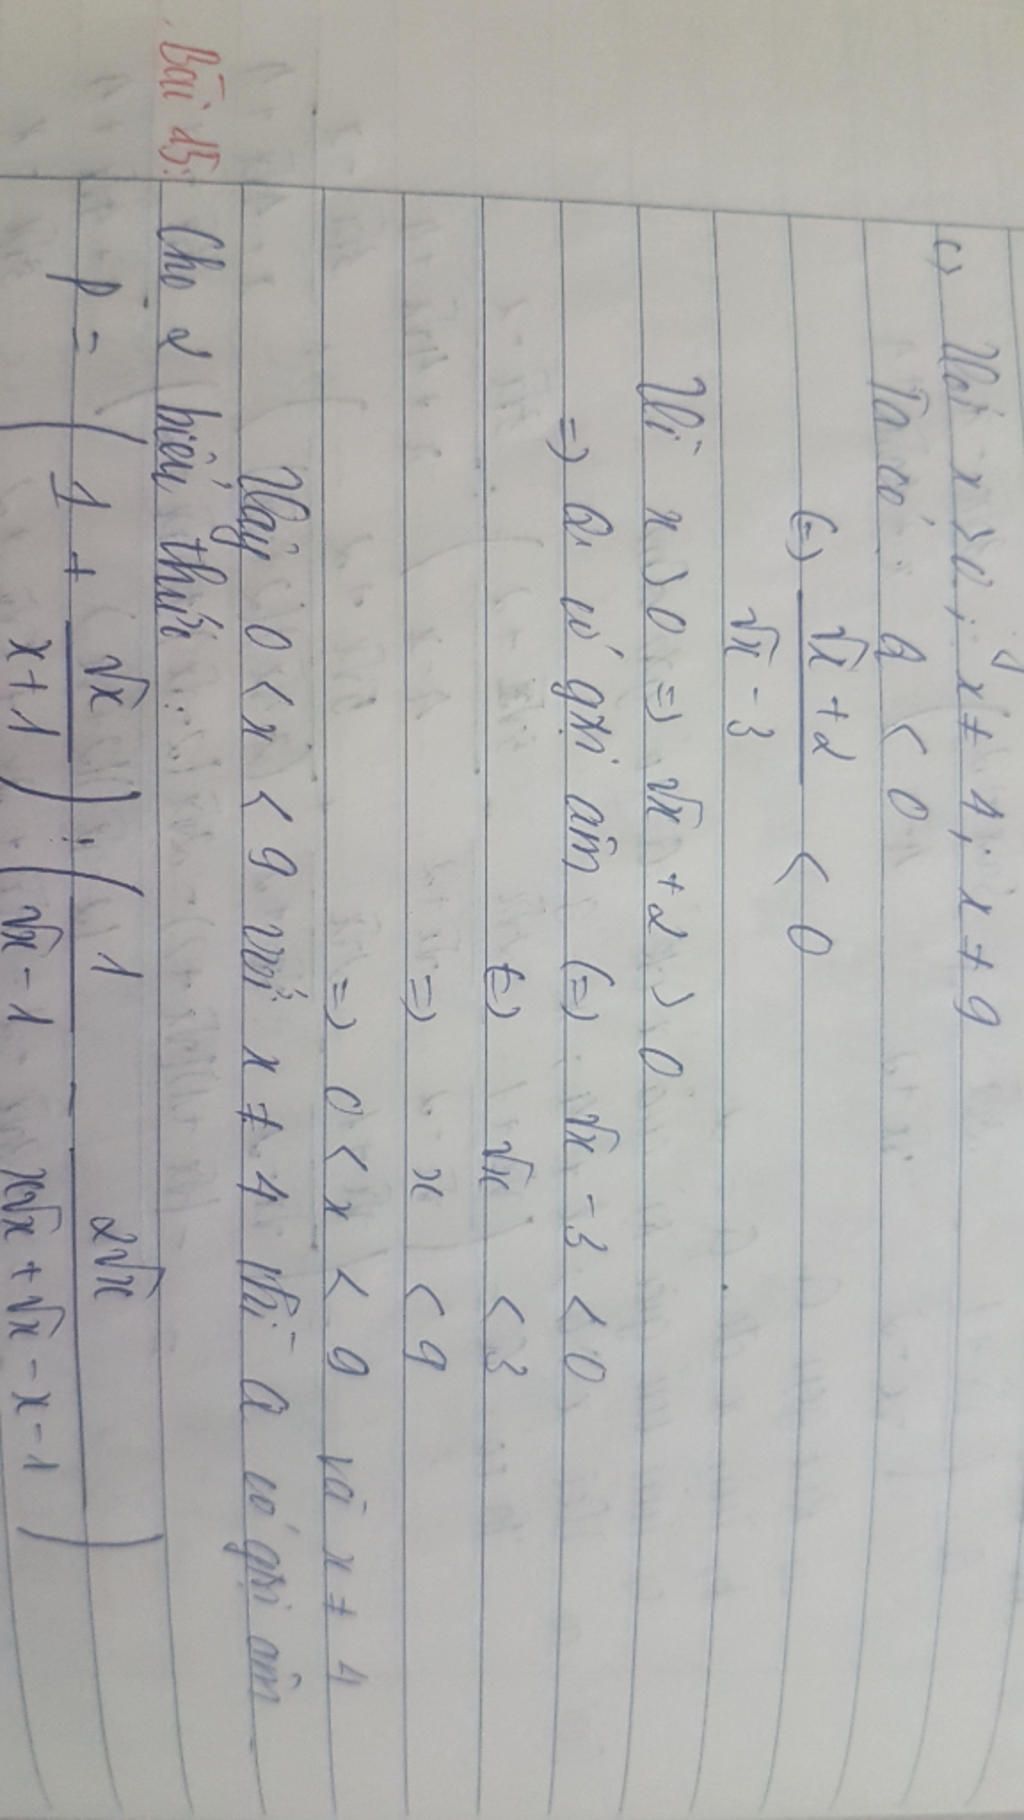 c) Với x > 0; x ≠ 4; x ≠ 9
Ta có: Q < 0
(=) (√x + 2)/(√x - 3) < 0
Vì x > 0 => √x + 2 > 0
=> Q có gtrị âm (=) √x - 3 < 0
(=) √x < 3
=> x < 9
=> 0 < x < 9 và x ≠ 4
Vậy 0 < x < 9 với x ≠ 4 thì Q có gtrị âm
Bài 15: Cho 2 biểu thức:
P = (1 + √x/(x+1)) : (1/(√x - 1) - 2√x/(x√x + √x - x - 1))